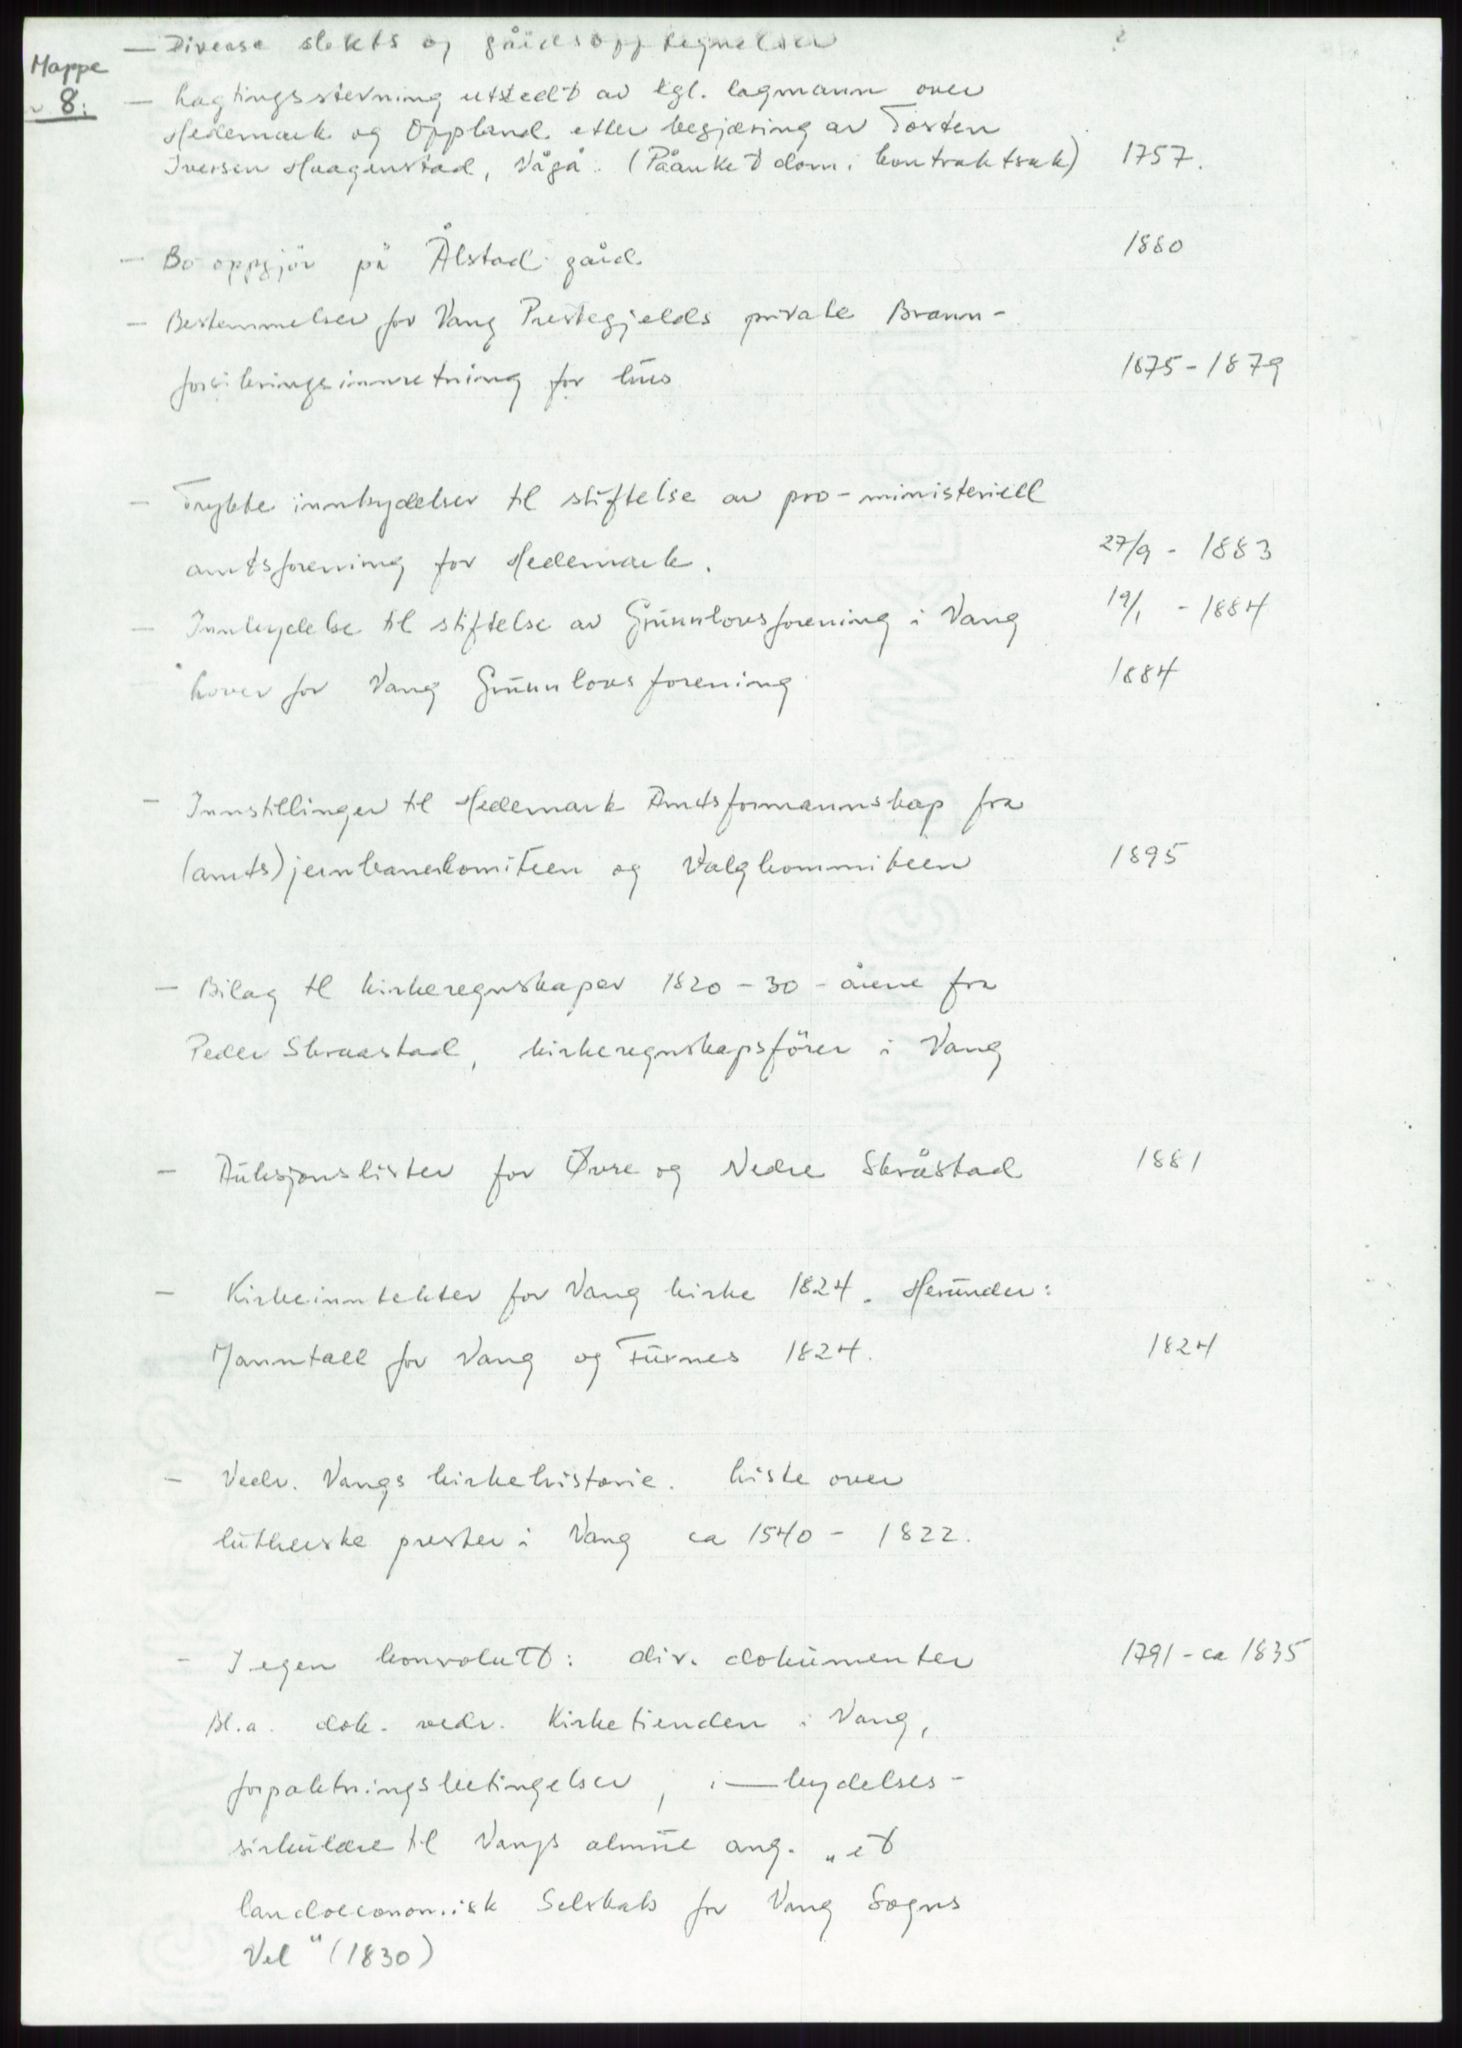 — Diverse slekts og gårdsopptegnelser ?
Mappe
8:
— Lagtingsstevning utstedt av kgl. lagmann over
Hedemark og Oppland etter begjæring av Tosten
Iversen Haagenstad, Vågå. (Påanket dom i kontraktsak) 1757.
— Bo oppgjör på Ålstad gård 1880
— Bestemmelser for Vang Prestegjelds private Brann-
forsikringsinnretning for hus 1875-1879
— Trykte innbydelser til stiftelse av pro-ministeriell
amtsforening for Hedemark. 27/9 - 1883
— Innbydelse til stiftelse av Grunnlovsforening i Vang 19/1 - 1884
Lover for Vang Grunnlovsforening 1884
— Innstillinger til Hedemark Amtsformannskap fra
(amts)jernbanekomiteen og Valgkommiteen 1895
— Bilag til kirkeregnskaper 1820-30-årene fra
Peder Skraastad, kirkeregnskapsförer i Vang
— Auksjonslister for Øvre og Nedre Skråstad 1881
— Kirkeinntekter for Vang kirke 1824. Herunder:
Manntall for Vang og Furnes 1824. 1824
— Vedr. Vangs kirkehistorie. Liste over
lutherske prester i Vang ca 1540 - 1822.
- I egen konvolutt: div. dokumenter 1791 - ca 1835
Bl.a. dok. vedr. Kirketienden i Vang,
forpaktningsbetingelser, i—bydelses-
sirkulære til Vangs almue ang. „et
landoeconomisk Selskab for Vang Sogns
Vel" (1830)